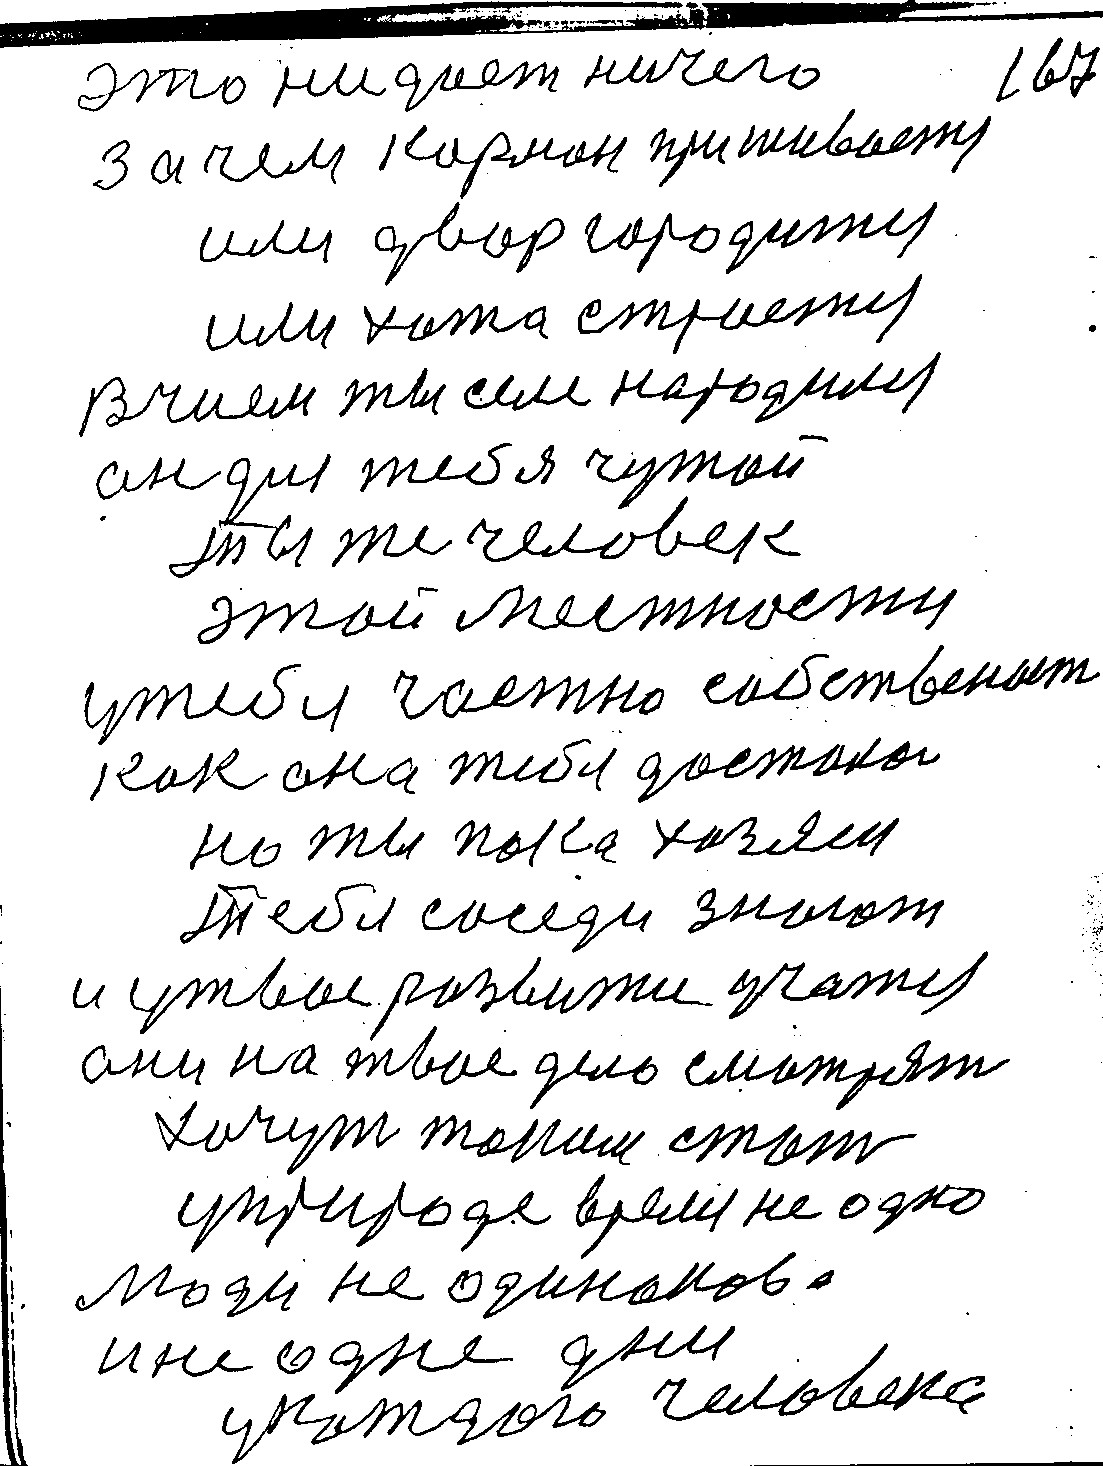 это ни дает ничего 167
Зачем карман пришивается
или двор городится
или хата строется
В чием ты селе народился
он для тебя чутой
Ты же человек
этой местности
утебя частно собственост
как она тебя достала
но ты пока хозяен
Тебя соседи знают
и у твое развитие учатся
они на твое дело смотрят
хочут таким стать
уприроде время не одно
Люди не одинаково
и не одне дни
укаждого человека